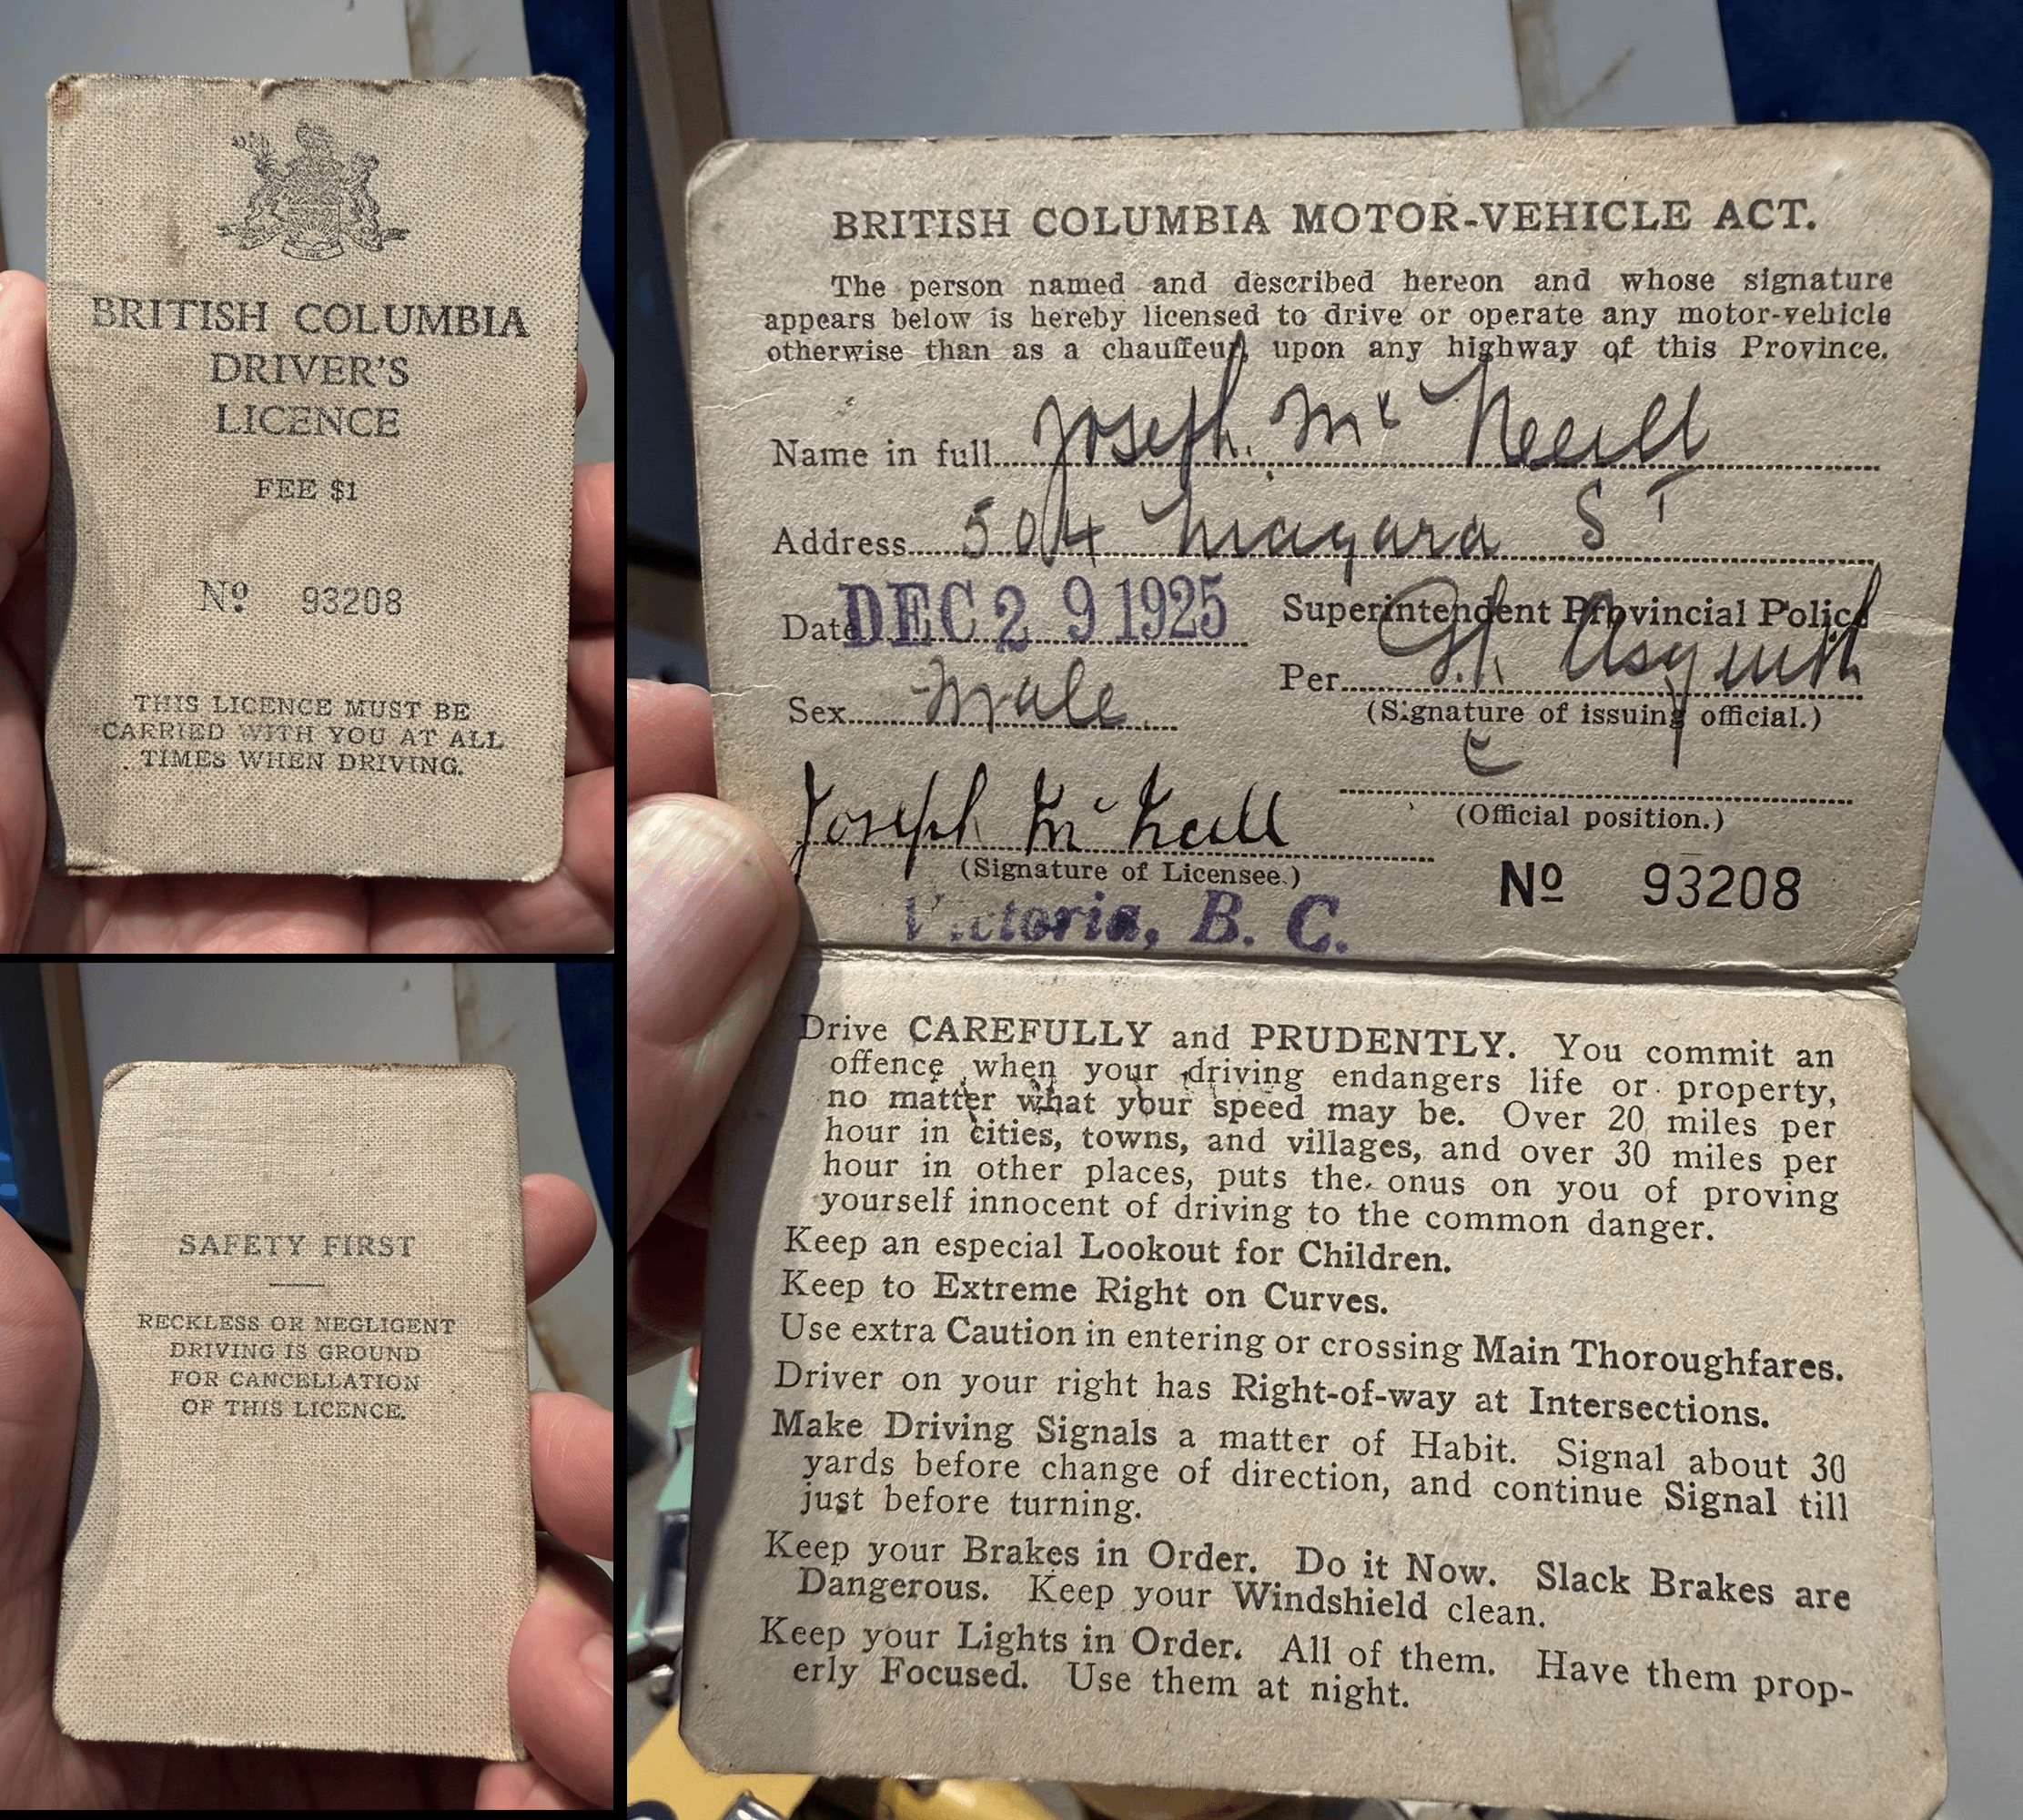 BRITISH COLUMBIA
DRIVER'S
LICENCE
FEE $1
Nº 93208
THIS LICENCE MUST BE
CARRIED WITH YOU AT ALL
TIMES WHEN DRIVING.
SAFETY FIRST
RECKLESS OR NEGLIGENT
DRIVING IS GROUND
FOR CANCELLATION
OF THIS LICENCE.
BRITISH COLUMBIA MOTOR-VEHICLE ACT.
The person named and described hereon and whose signature
appears below is hereby licensed to drive or operate any motor-vehicle
otherwise than as a chauffeur, upon any highway of this Province.
Name in full Joseph Mc Neill
Address 504 Niagara ST
Date DEC 29 1925
Superintendent Provincial Police
Per Asquith
(Signature of issuing official.)
Sex Male
Joseph McNeill
(Signature of Licensee.)
(Official position.)
Nº 93208
Victoria, B. C.
Drive CAREFULLY and PRUDENTLY. You commit an
offence when your driving endangers life or property,
no matter what your speed may be. Over 20 miles per
hour in cities, towns, and villages, and over 30 miles per
hour in other places, puts the onus on you of proving
yourself innocent of driving to the common danger.
Keep an especial Lookout for Children.
Keep to Extreme Right on Curves.
Use extra Caution in entering or crossing Main Thoroughfares.
Driver on your right has Right-of-way at Intersections.
Make Driving Signals a matter of Habit. Signal about 30
yards before change of direction, and continue Signal till
just before turning.
Keep your Brakes in Order. Do it Now. Slack Brakes are
Dangerous. Keep your Windshield clean.
Keep your Lights in Order. All of them. Have them prop-
erly Focused. Use them at night.